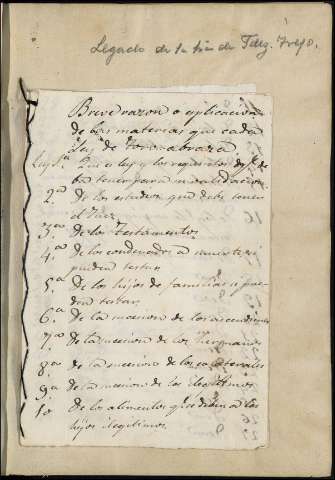 Legado de la Sra. de Fdez. Trejo.
Breve razon o explicacion
de las materias que cada
Ley de Toro abraza
Ley 1.a Que es ley y los requisitos q.e de
ba tener para su validacion
2.a De los estudios que debe tener
el Juez
3.a De los Testamentos
4.a De los condenados a muerte si
pueden testar
5.a De los hijos de familias si pue
den testar
6.a De la sucesion de los ascendientes
7.a De la sucesion de los Hermanos
8.a De la sucesion de los colaterales
9.a De la sucesion de los ilegitimos
10 De los alimentos que deben a los
hijos ilegitimos